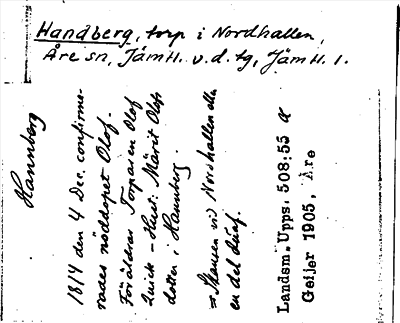 Handberg, torp i Nordhallen,
Åre sn, Jämtl. v. d. tg, Jämtl. l.
Hannberg
1814 den 4 Dec. confirme-
rades nöddopet Olof.
Föräldrar Torparen Olof
Quick - Hust. Märit Olofs
dotter i Hannberg.
= Skansen vid Nordhallen eller
en del däraf.
Landsm. Upps. 508:55 a
Geijer 1905, Åre